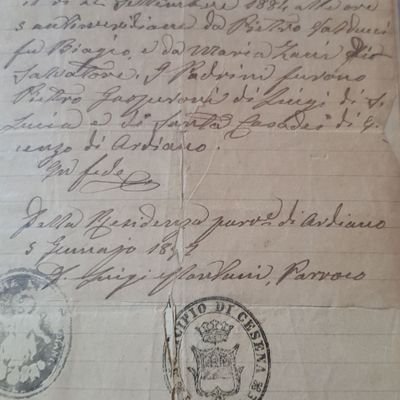 il dì 12 Settembre 1884 alle ore
5 antimeridiane da Pietro Balducci
fu Biagio, e da Maria Zani di
Salvatore. I Padrini furono
Pietro Gasperoni di Luigi di S.
Lucia e di Santa Casadei di
cenzo di Ardiano.
In fede
Dalla Residenza parr. di Ardiano
5 Gennajo 18
D. Luigi Parroco
CIPIO DI CESENA